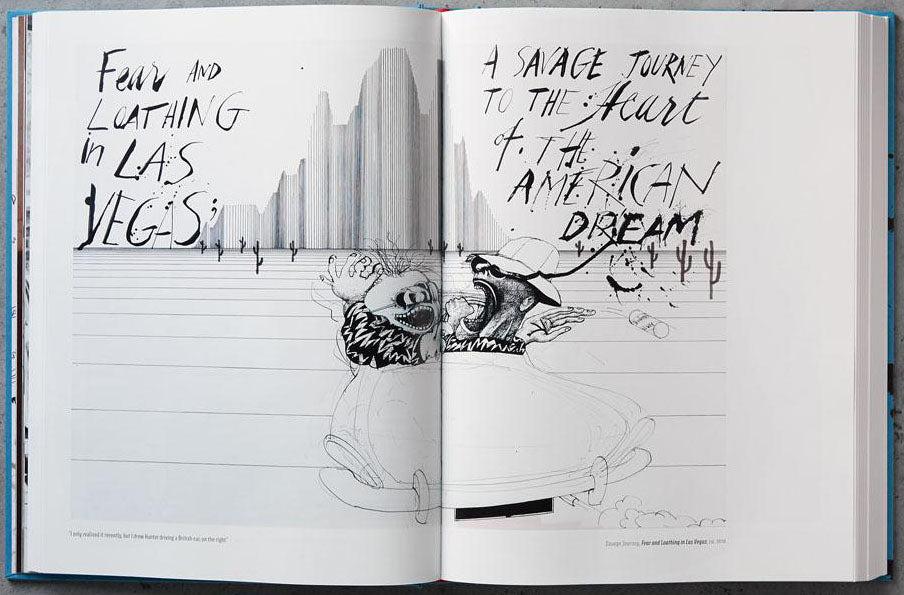 Fear AND
LOATHING
in LAS
VEGAS;
A SAVAGE JOURNEY
TO THE Heart
of. THE
AMERICAN
DREAM
"I only realized it recently, but I drew Hunter driving a British car, on the right"
Savage Journey, Fear and Loathing in Las Vegas,